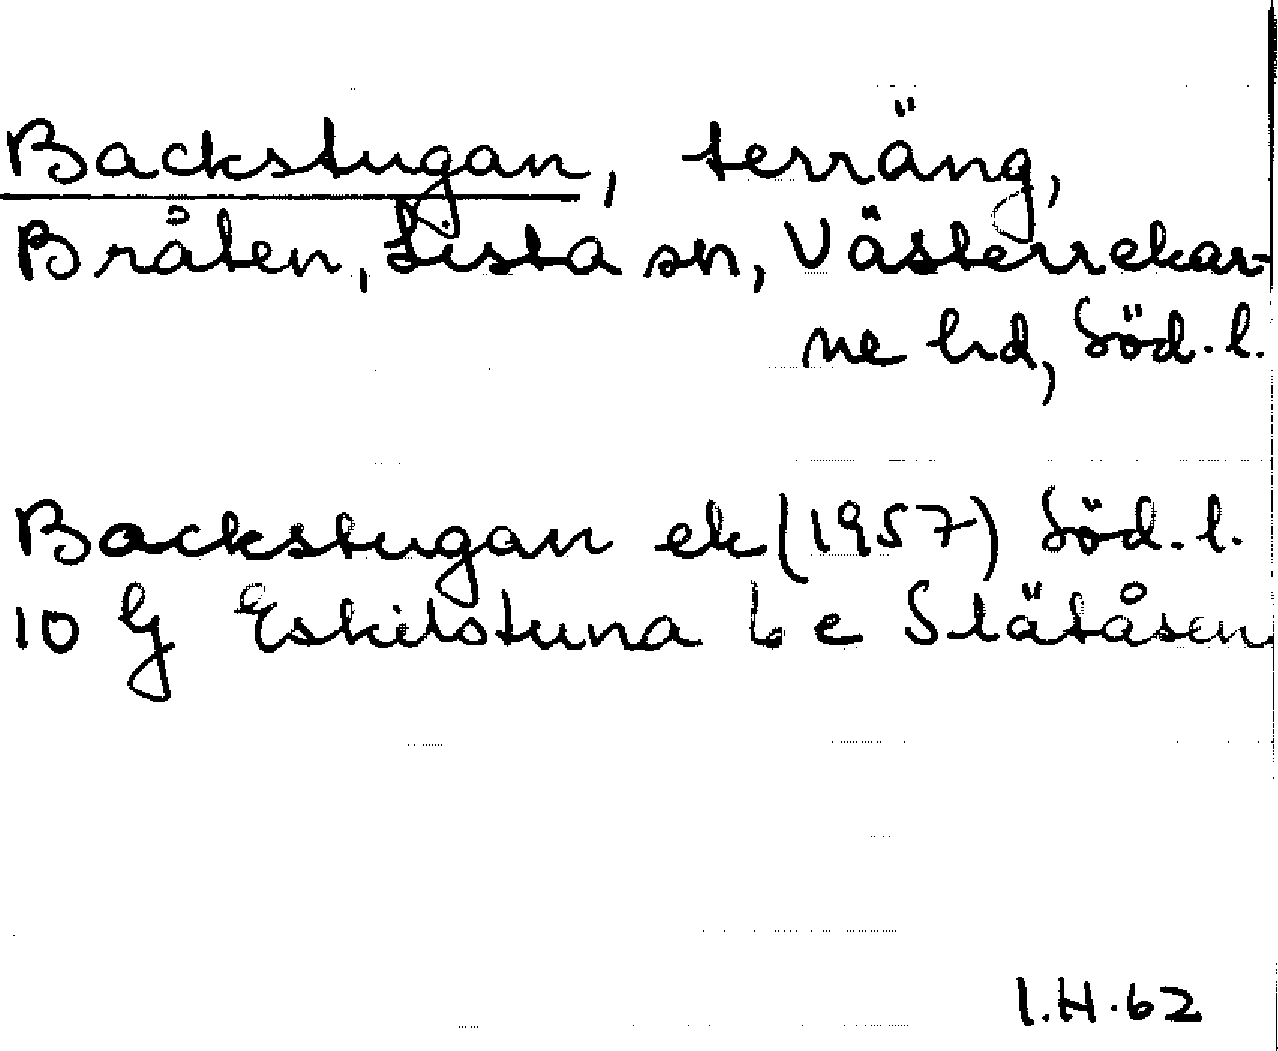 Backstugan, terräng,
Bråten, Lista sn, Västerrekar-
ne hd, Söd. l.
Backstugan ek (1957) Söd. l.
10 G Eskilstuna 6 e Slätåsen
I.H.62